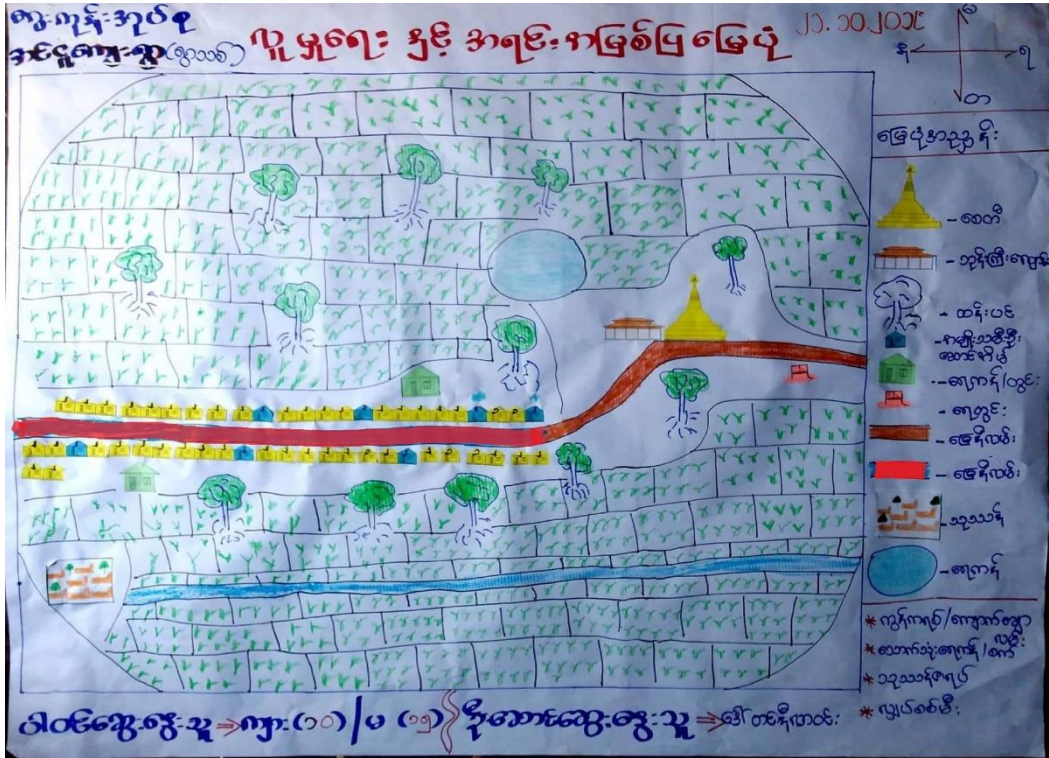 ကွႏ်းကုန်းအုပ်စု
အင်ငူကျေးရွာ (ရွာသစ်)
လူမှုရေး နှင့် အရင်းအမြစ်ပြ မြေပုံ
၂၁.၁၀.၂၀၁၉
မ
န
ရ
တ
မြေပုံအညွှန်း
- စေတီ
- ဘုန်းကြီးကျောင်း
- ထန်းပင်
- အမျိုးသမီးဦး
ဆောင်အိမ်
- ရေကန်/တွင်း
- ရေတွင်း
- မြေနီလမ်း
- မြေနီလမ်း
- သုသာန်
- ရေကန်
* ကွန်ကရစ်/ကျောက်ချော
လမ်း
* သောက်သုံးရေကန်/စက်
* သုသာန်ဇရပ်
* လျှပ်စစ်မီး
ပါဝင်ဆွေးနွေးသူ ⇒ ကျား (၁၀) / မ (၁၅) ဦးဆောင်ဆွေးနွေးသူ ⇒ ဒေါ်တင်နီလာဝင်း